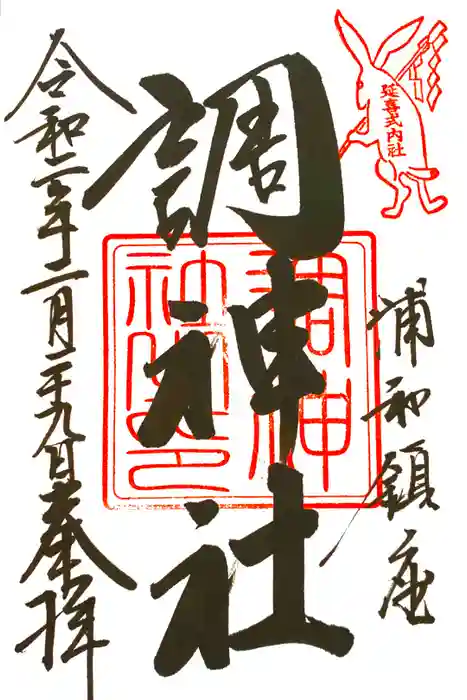 延喜式内社
浦和鎮座
調神社
調神社印
令和二年二月二十九日奉拝